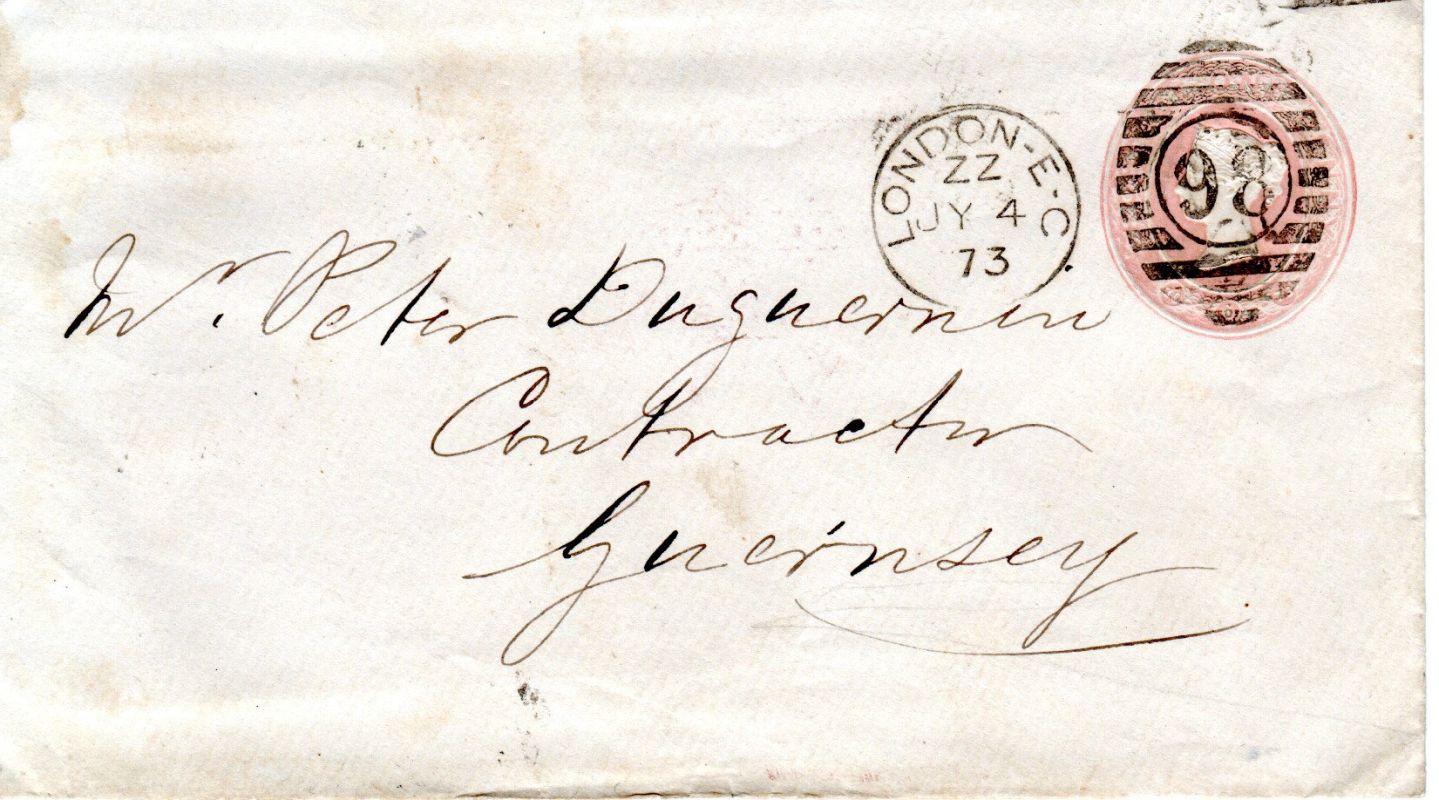 LONDON-E·C
ZZ
JY 4
73
98
Mr. Peter Duquemin
Contractor
Guernsey